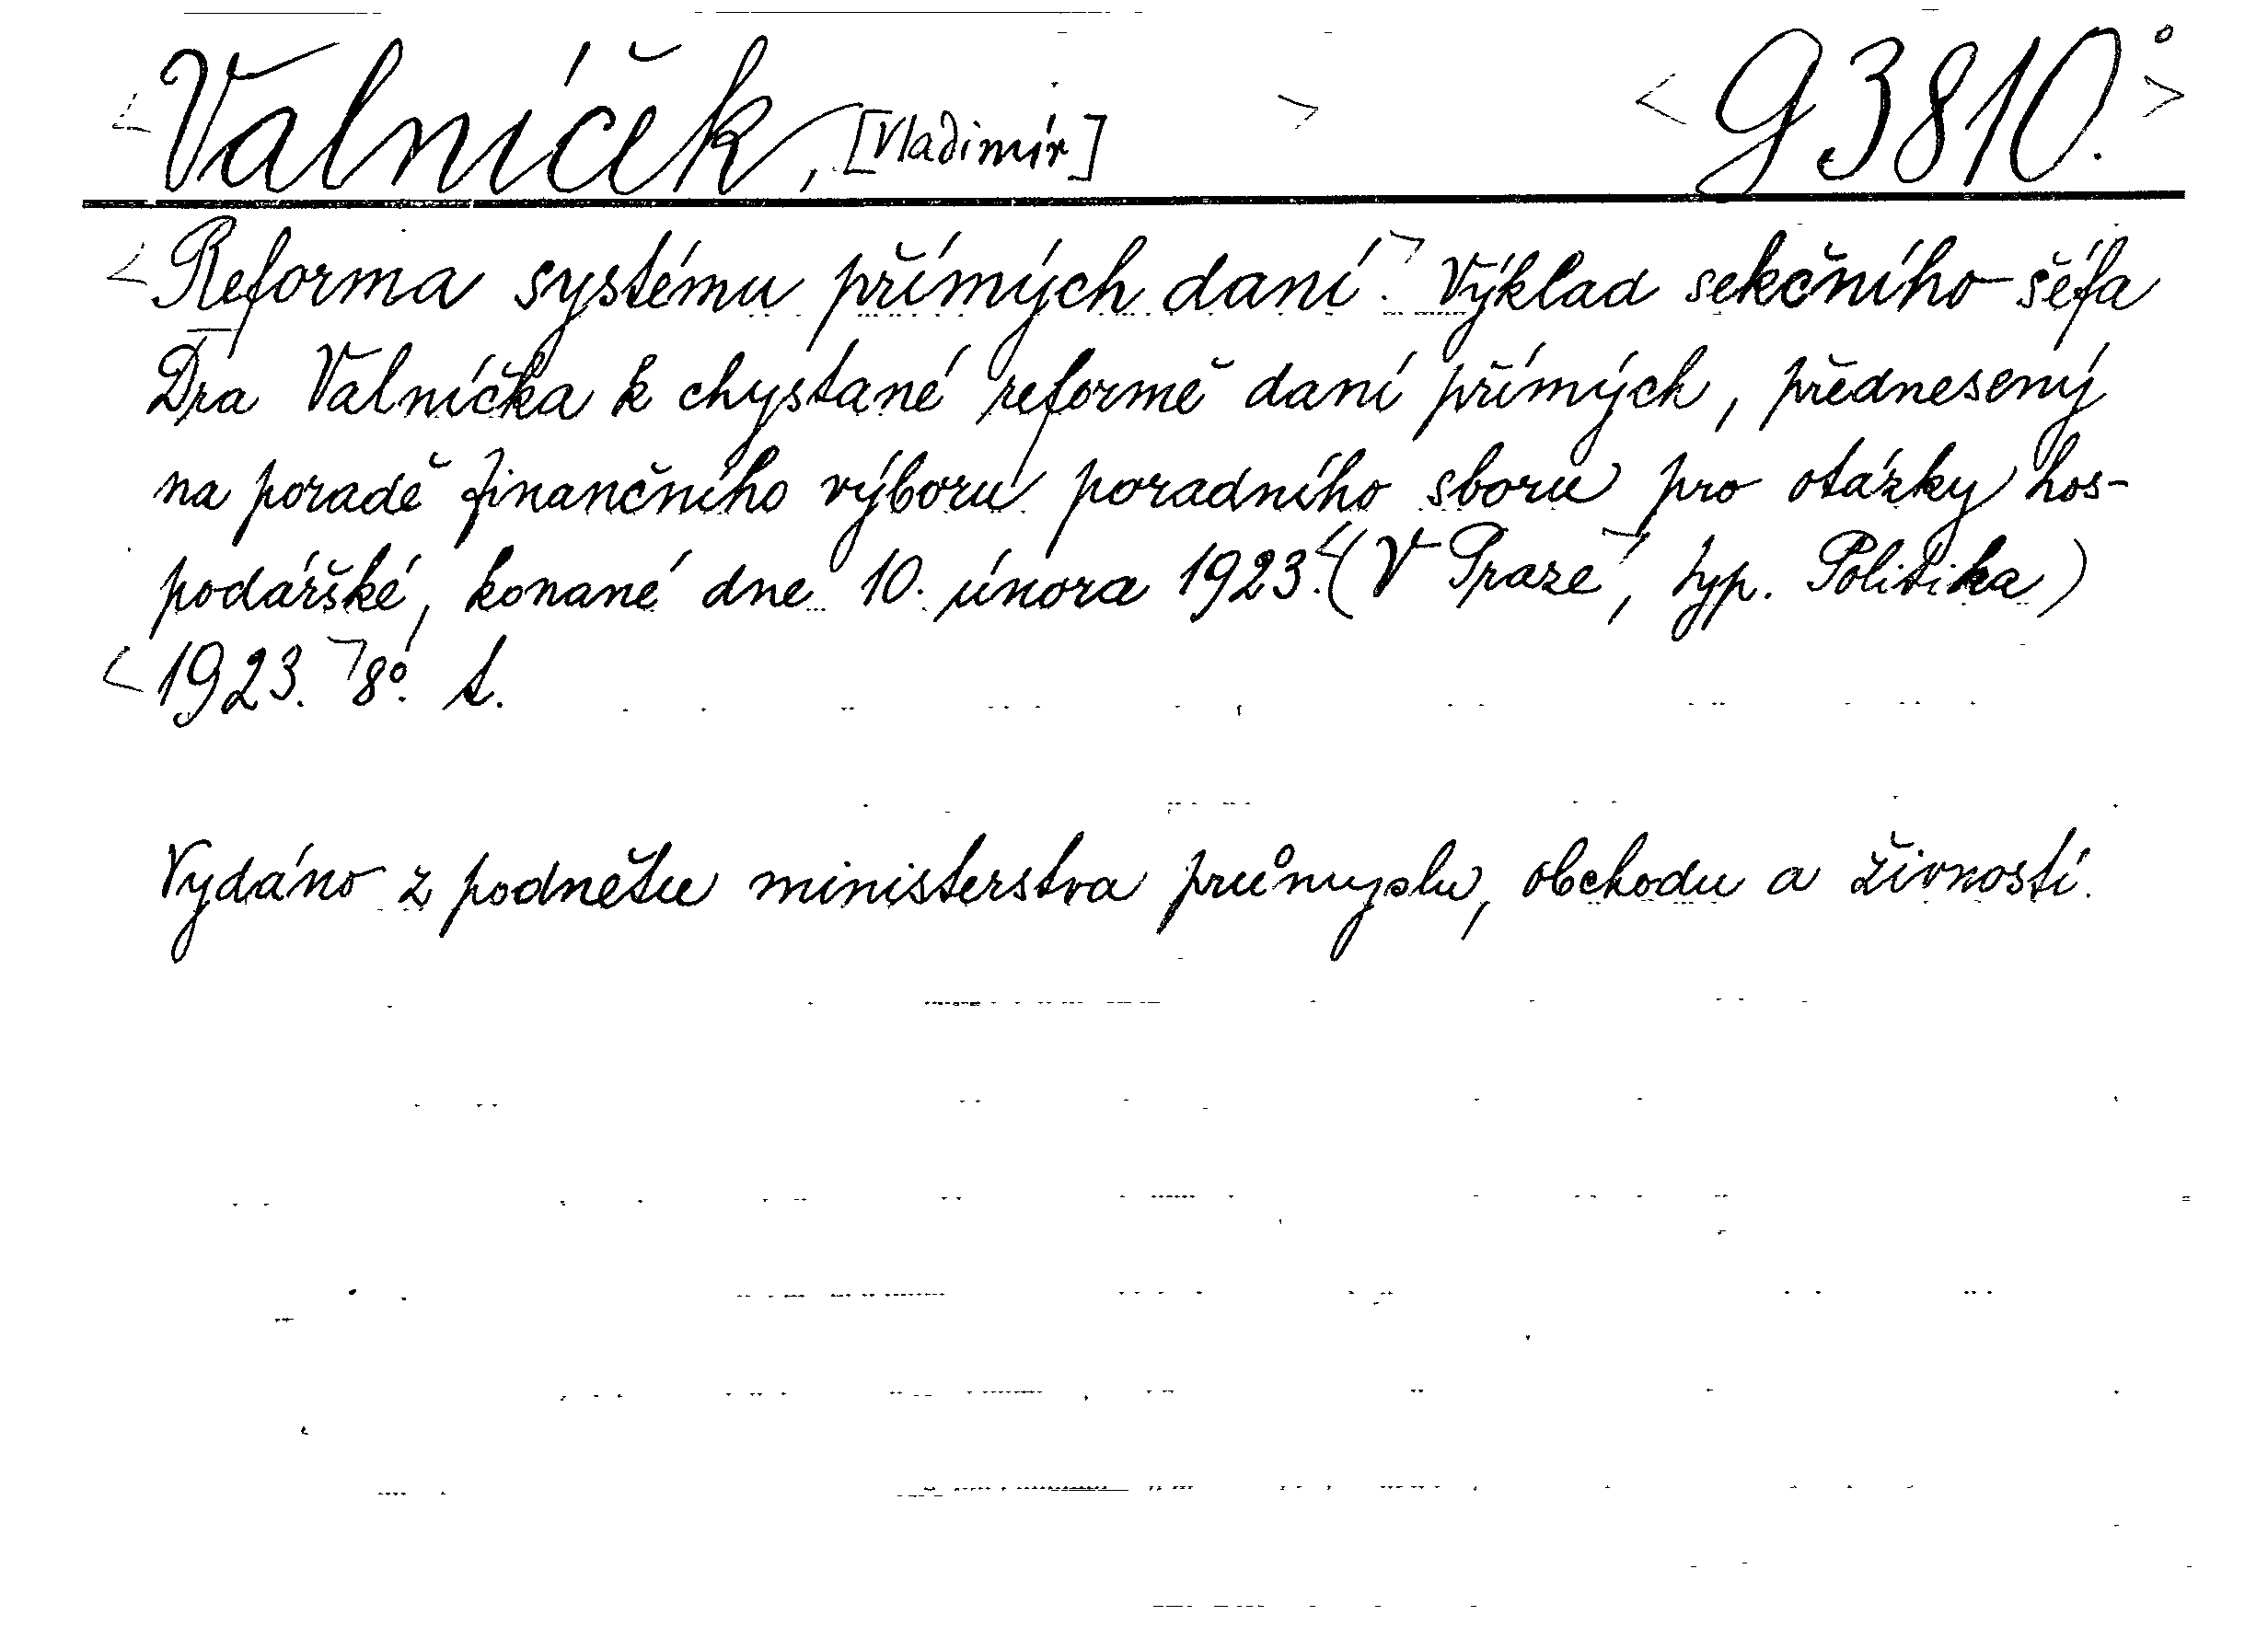 <Valníček, [Vladimír]> <G 3810.°>
<Reforma systému přímých daní.> Výklad sekčního šéfa
Dra Valníčka k chystané reformě daní přímých, přednesený
na poradě finančního výboru poradního sboru pro otázky hos-
podářské, konané dne 10. února 1923.<(V Praze>, typ. Politika)
<1923.> 8°. t.
Vydáno z podnětu ministerstva průmyslu, obchodu a živností.